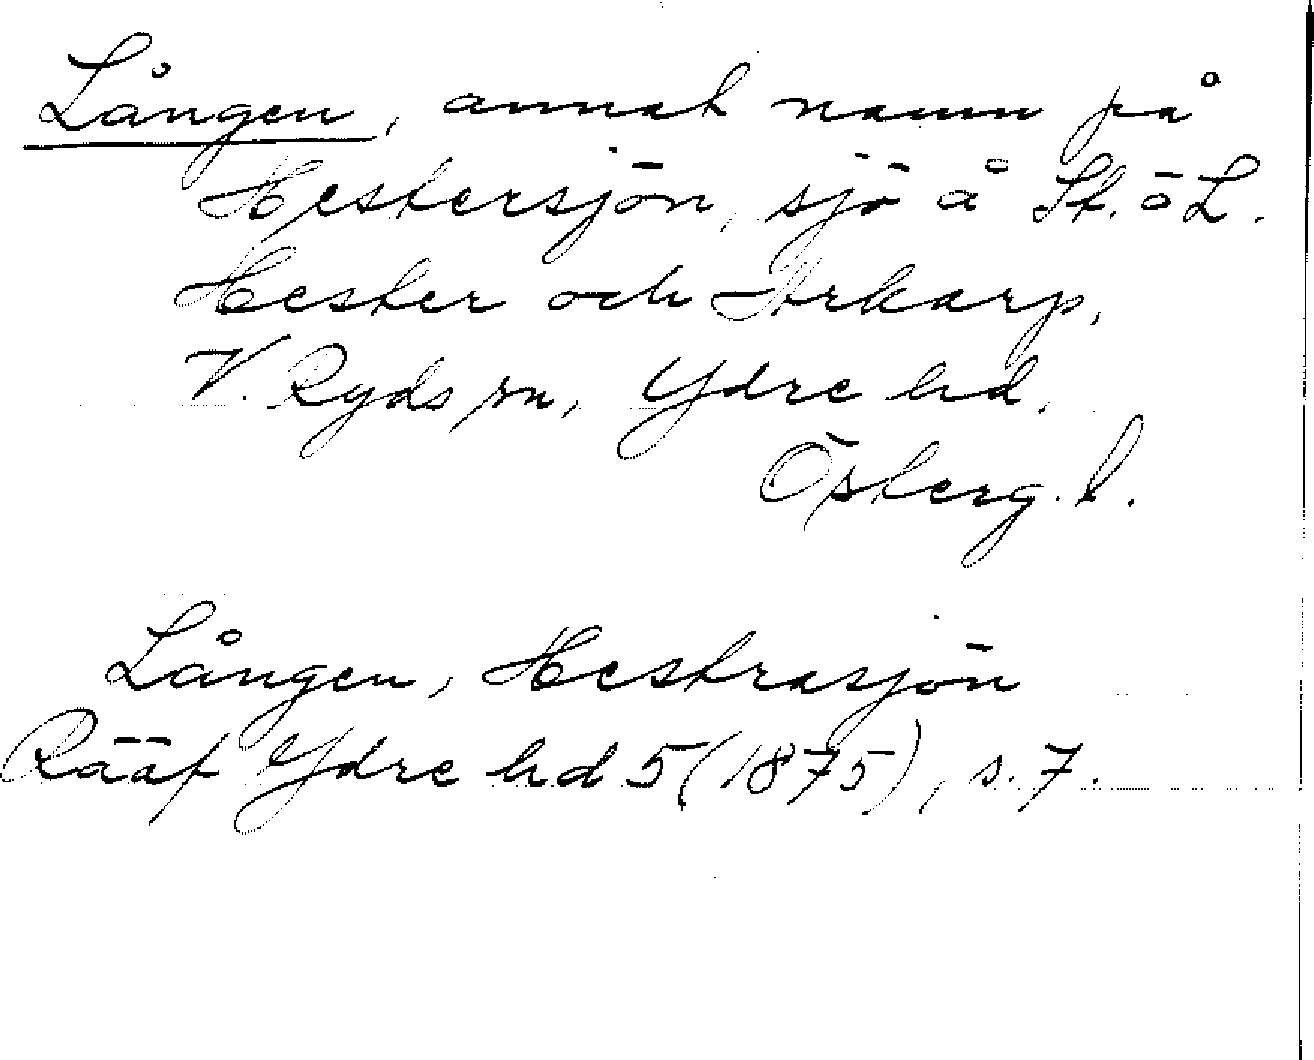 Lången, annat namn på
Hestersjön, sjö å St. o L.
Hester och Årkarp,
V. Ryds sn, Ydre hd.
Österg. l.
Lången, Hestrasjön
Rääf Ydre hd 5 (1875), s. 7.